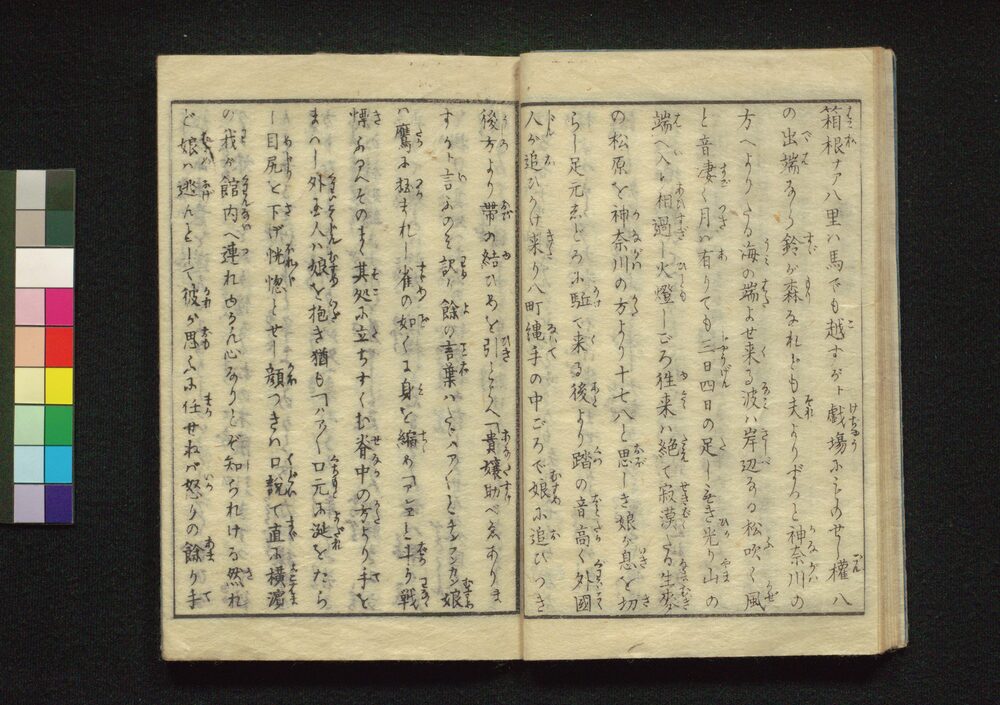 箱根ナア八里ハ馬でも越すがト戯場にてのせし権八
の出端なる鈴が森なれども夫よりずつと神奈川の
方へよりたる海の端よせ来る波ハ岸辺なる松吹く風
と音凄く月ハ有りても三日四日の足しなき光り山の
端へ入と相過し火燈しごろ往来ハ絶て寂漠たる生麦
の松原を神奈川の方より十七八と思しき娘が息を切
らし足元しどろに駈て来る後より踏の音高く外國
人が追ひかけ来り八町縄手の中ごろで娘に追ひつき
後方より帯の結ひめを引とらへ「貴嬢助べゑありま
すかト言ふのミ訳り餘の言葉ハ娘
ハ鷹に捉まれし雀の如くに身を縮め戦
慄ふるへそのまゝ其処に立ちすくむ脊中の方より手を
まハし外国人ハ娘を抱き猶も口元に涎をたら
し目尻を下げ恍惚とせし顔つきハ口説て直に横濱
の我が館内へ連れゆかん心なりとぞ知られける然れ
ど娘ハ逃んとして彼が思ふに任せねバ怒りの餘り手